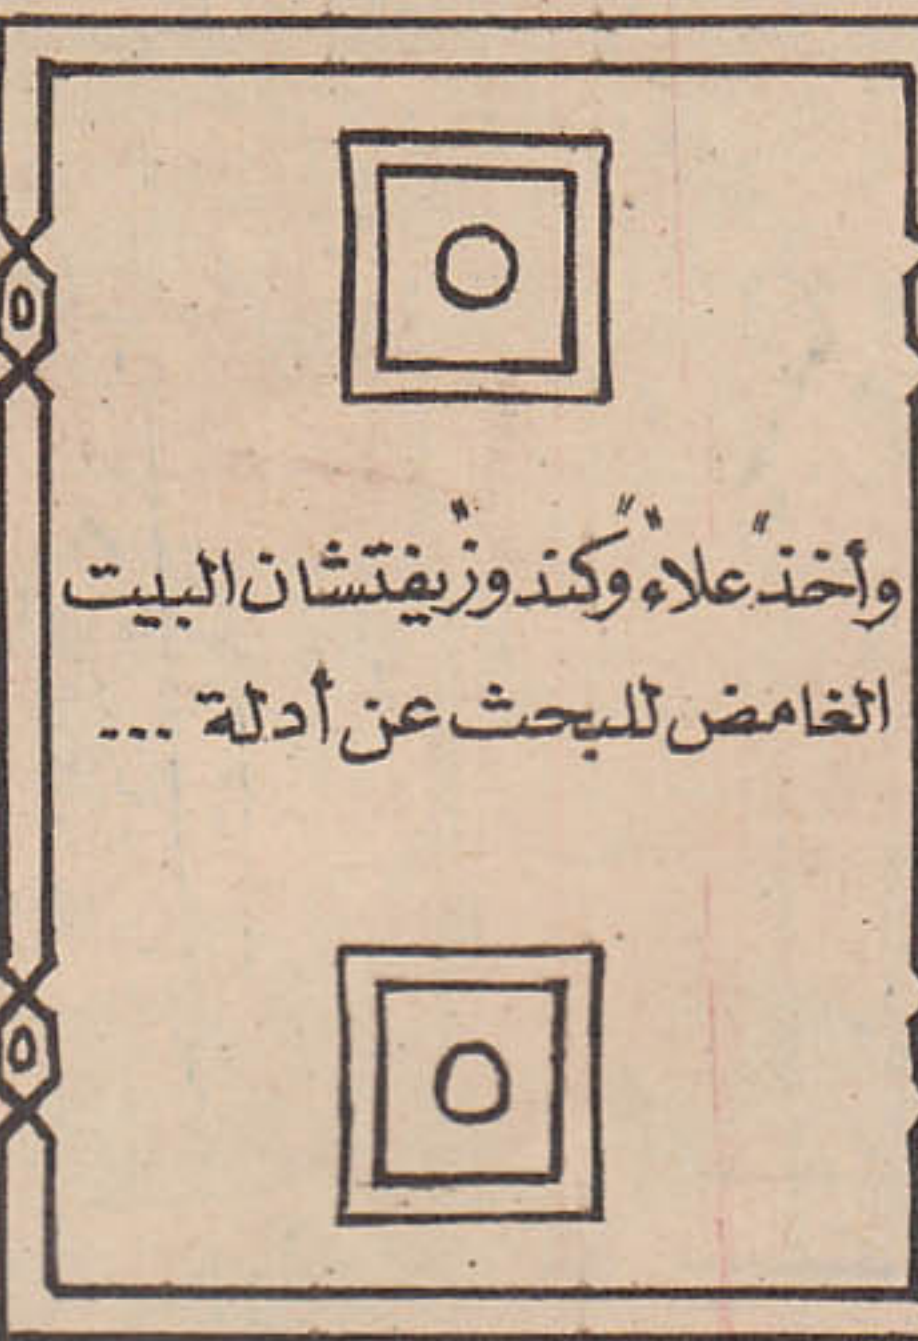 وأخذ "علاء" و"كندوز" يفتشان البيت
الغامض للبحث عن أدلة ...